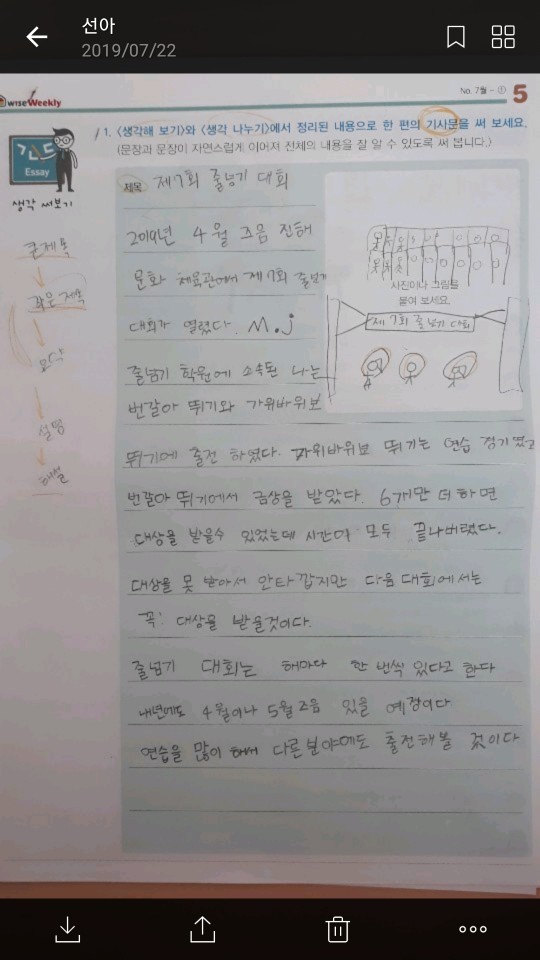 선아
2019/07/22
wiseWeekly
No. 7월 - ①
5
1. <생각해 보기>와 <생각 나누기>에서 정리된 내용으로 한 편의 기사문을 써 보세요.
(문장과 문장이 자연스럽게 이어져 전체의 내용을 잘 알 수 있도록 써 봅니다.)
Essay
생각 써보기
큰제목
작은제목
요약
설명
해설
제목 제7회 줄넘기 대회
2019년 4월 즈음 진해
문화 체육관에서 제7회 줄넘기
대회가 열렸다. M.j
줄넘기 학원에 소속된 나는
번갈아 뛰기와 가위바위보
뛰기에 출전 하였다. 가위바위보 뛰기는 연습 경기였고
번갈아 뛰기에서 금상을 받았다. 6개만 더 하면
대상을 받을수 있었는데 시간이 모두 끝나버렸다.
대상을 못 받아서 안타깝지만 다음 대회에서는
꼭! 대상을 받을것이다.
줄넘기 대회는 해마다 한 번씩 있다고 한다
내년에도 4월이나 5월 즈음 있을 예정이다
연습을 많이 해서 다른 분야에도 출전해볼 것이다
사진이나 그림을
붙여 보세요.
제 7회 줄넘기 대회